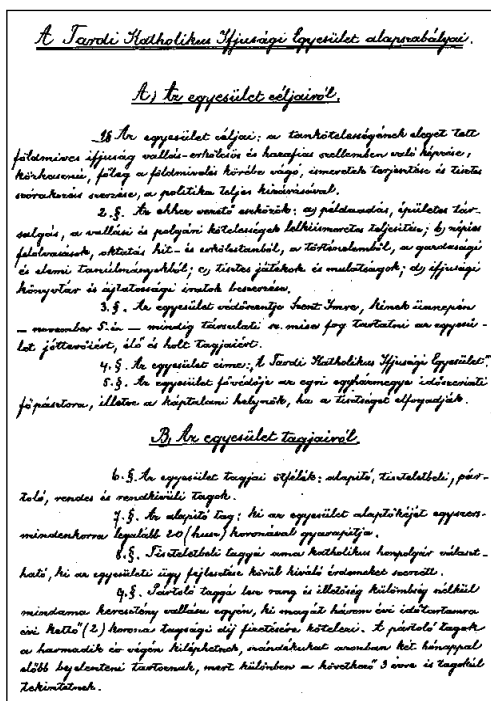 A Tardi Katholikus Ifjusági Egyesület alapszabályai.
A, Az egyesület céljairól.
1§ Az egyesület céljai: a tankötelességének eleget tett
földmives ifjuság vallás-erkölcsös és hazafias szellemben való képzése,
közhasznú, főleg a földmivelés körébe vágó, ismeretek terjesztése és tisztes
szórakozás szerzése, a politika teljes kizárásával.
2.§. Az ehhez vezető eszközök: a, példaadás, épületes tár-
salgás, a vallási és polgári kötelességek lelkiismeretes teljesítése; b, népies
felolvasások, oktatás hit- és erkölcstanból, a történelemből, a gazdasági
és elemi tanulmányokból; c, tisztes játékok és mulatságok; d, ifjusági
könyvtár és ájtatossági iratok beszerzése.
3.§. Az egyesület védőszentje Szent Imre, kinek ünnepén
– november 5.-én – mindig társulati sz. mise fog tartatni az egyesü-
let jóttevőiért, élő és holt tagjaiért.
4.§. Az egyesület címe: „A Tardi Katholikus Ifjusági Egyesület”.
5.§. Az egyesület fővédője az egri egyházmegye időszerinti
főpásztora, illetve a káptalani helynök, ha a tisztséget elfogadják.
B, Az egyesület tagjairól.
6.§. Az egyesület tagjai ötfélék: alapító, tiszteletbeli, pár-
toló, rendes és rendkívüli tagok.
7.§. Az alapító tag: ki az egyesület alaptőkéjét egyszers-
mindenkorra legalább 20 (husz) koronával gyarapítja.
8.§. Tiszteletbeli taggá ama katholikus honpolgár választ-
ható, ki az egyesületi ügy fejlesztése körül kiváló érdemeket szerzett.
9.§. Pártoló taggá lesz rang és illetőség külömbség nélkül
mindama keresztény vallásu egyén, ki magát három évi időtartamra
évi kettő (2) korona tagsági díj fizetésére kötelezi. A pártoló tagok
a harmadik év végén kiléphetnek, szándékukat azonban két hónappal
előbb bejelenteni tartoznak, mert különben a következő 3 évre is tagokúl
tekintetnek.